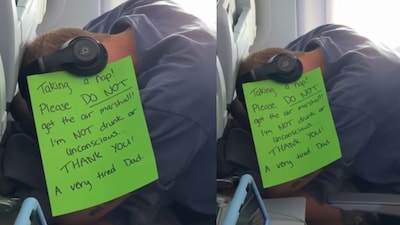 Taking a nap!
Please DO NOT
get the air marshall!!
I'm NOT drunk or
unconscious.
THANK YOU!
A very tired Dad.
Taking a nap!
Please DO NOT
get the air marshall!!
I'm NOT drunk or
unconscious.
THANK YOU!
A very tired Dad.